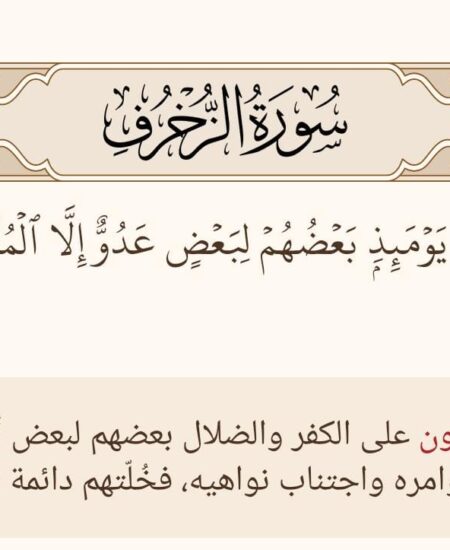 سُورَةُ الزُّخْرُفِ
يَوْمَئِذِۭ بَعْضُهُمْ لِبَعْضٍ عَدُوٌّ إِلَّا
ون على الكفر والضلال بعضهم لبعض
وامره واجتناب نواهيه، فخُلّتهم دائمة